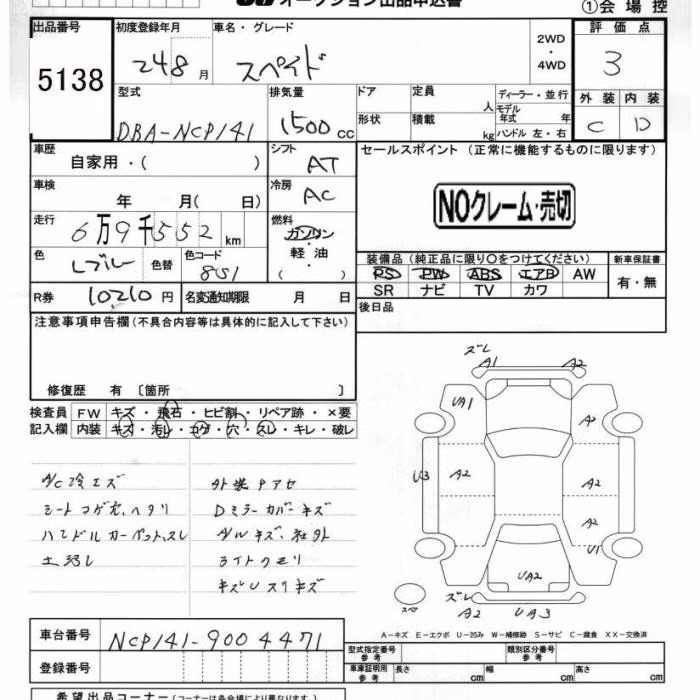 オークション出品申込書 ①会場控
出品番号 初度登録年月 車名・グレード 2WD・4WD 評価点
5138 24 8月 スペイド 3
型式 排気量 ドア 定員 人 ディーラー・並行 外装 内装
DBA-NCP141 1500cc 形状 積載 kg モデル年式 年 ハンドル 左・右 C D
車歴 シフト セールスポイント (正常に機能するものに限ります)
自家用・( ) AT
車検 冷房
年 月( 日) AC NOクレーム・売切
走行 燃料
6万9千552km ガソリン
軽油
( )
色 色替 色コード 装備品 (純正品に限り〇をつけてください) 新車保証書
Lブルー 851 PS PW ABS エアB AW 有・無
SR ナビ TV カワ
R券 10210円 名変通知期限 月 日 後日品
注意事項申告欄 (不具合内容等は具体的に記入して下さい)
修復歴 有 〔箇所 〕
検査員 FW キズ・飛石・ヒビ割・リペア跡・×要
記入欄 内装 キズ・汚レ・コゲ・穴・スレ・キレ・破レ
A/C冷エズ
シートコゲ穴、ヘタリ
ハンドルカーペットスレ
外装Pアセ
Dミラーカバーキズ
A/Wキズ、社外
ライトクモリ
キズUスリキズ
ズレ
A1 A2
UA1 A2
U3 A2 A2
A2
U1
UA2
スペア ズレ A2 UA3
A−キズ E−エクボ U−凹み W−補修跡 S−サビ C−腐食 XX−交換済
車台番号 NCP141-9004471
登録番号
型式指定番号 参考 類別区分番号 参考
車庫証明用 参考 長さ cm 幅 cm 高さ cm
希望出品コーナー (コーナーは各会場により異なります)